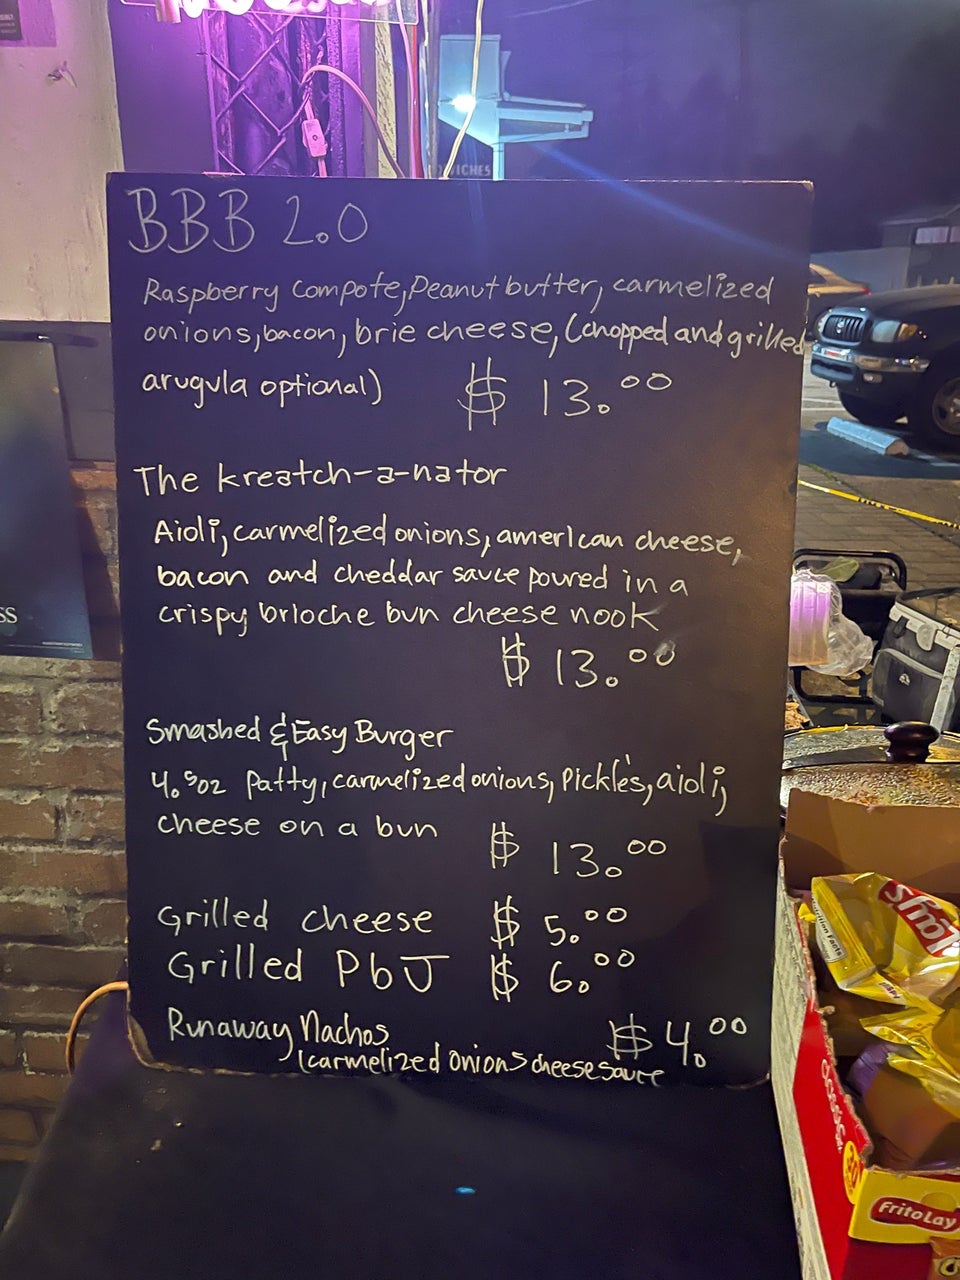 BBB 2.0
Raspberry compote, Peanut butter, carmelized
onions, bacon, brie cheese, (chopped and grilled
arugula optional) $ 13.00
The kreatch-a-nator
Aioli, carmelized onions, american cheese,
bacon and cheddar sauce poured in a
crispy brioche bun cheese nook
$ 13.00
Smashed & Easy Burger
4.5oz patty, carmelized onions, Pickle's, aioli,
cheese on a bun $ 13.00
Grilled cheese $ 5.00
Grilled PbJ $ 6.00
Runaway Nachos $ 4.00
(carmelized onions cheese sauce
Nutrition Facts
Lay's
FritoLay